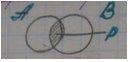 A B
P